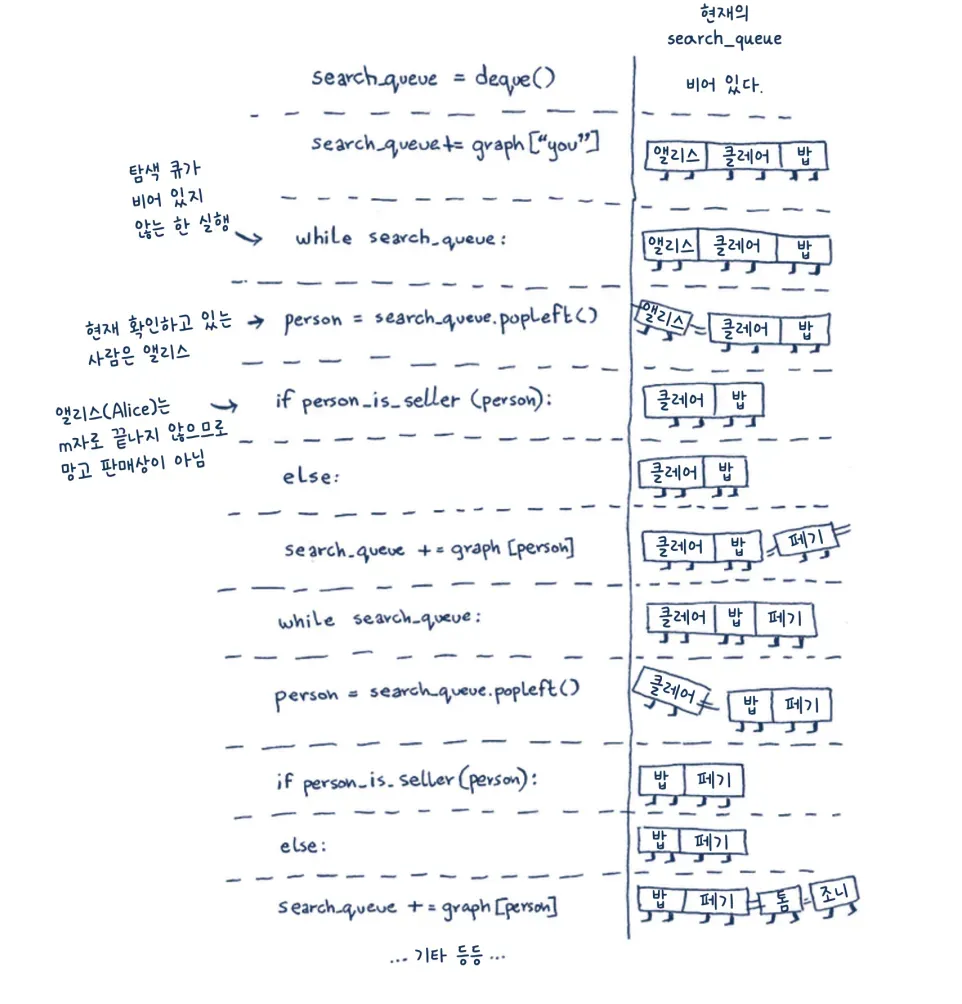 현재의
search_queue
search_queue = deque()
비어 있다.
search_queue += graph["you"]
앨리스 클레어 밥
탐색 큐가
비어 있지
않는 한 실행
while search_queue:
앨리스 클레어 밥
현재 확인하고 있는
사람은 앨리스
person = search_queue.popleft()
앨리스 클레어 밥
앨리스(Alice)는
m자로 끝나지 않으므로
망고 판매상이 아님
if person_is_seller (person):
클레어 밥
else:
클레어 밥
search_queue += graph [person]
클레어 밥 페기
while search_queue:
클레어 밥 페기
person = search_queue.popleft()
클레어 밥 페기
if person_is_seller (person):
밥 페기
else:
밥 페기
search_queue += graph [person]
밥 페기 톰 조니
... 기타 등등 ...